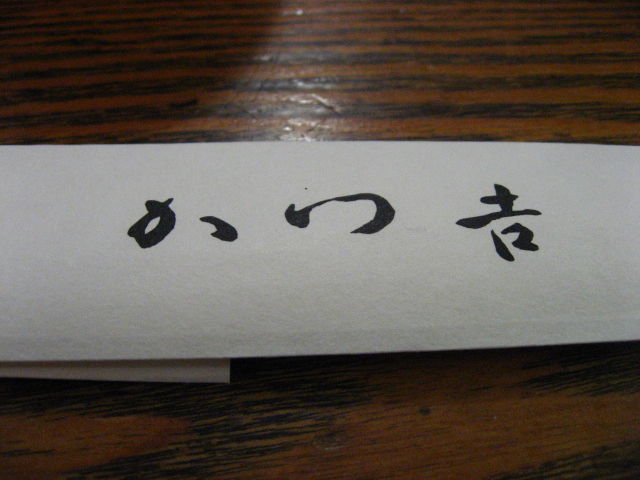 かつ吉